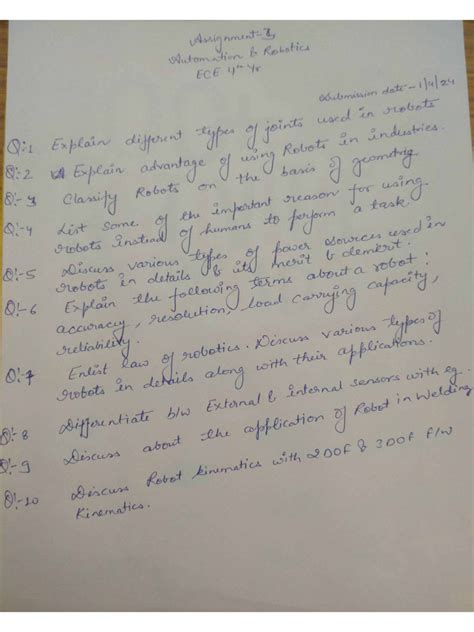 Assignment-3
Automation & Robotics
ECE 4th Yr
Submission date - 1/4/24
Q:1 Explain different types of joints used in robots
Q:-2 Explain advantage of using Robots in industries.
Q:-3 Classify Robots on the basis of geometry
Q:-4 List some of the important reason for using
robots instead of humans to perform a task.
Q:-5 Discuss various types of power sources used in
robots in details & its merit & demerit.
Q:-6 Explain the following terms about a robot:
accuracy, resolution, load carrying capacity,
reliability.
Q:-7 Enlist law of robotics. Discuss various types of
robots in details along with their applications.
Q:-8 Differentiate b/w External & internal sensors with eg.
Q:-9 Discuss about the application of Robot in Welding
Q:-10 Discuss Robot kinematics with 2DOF & 3DOF f/w
Kinematics.